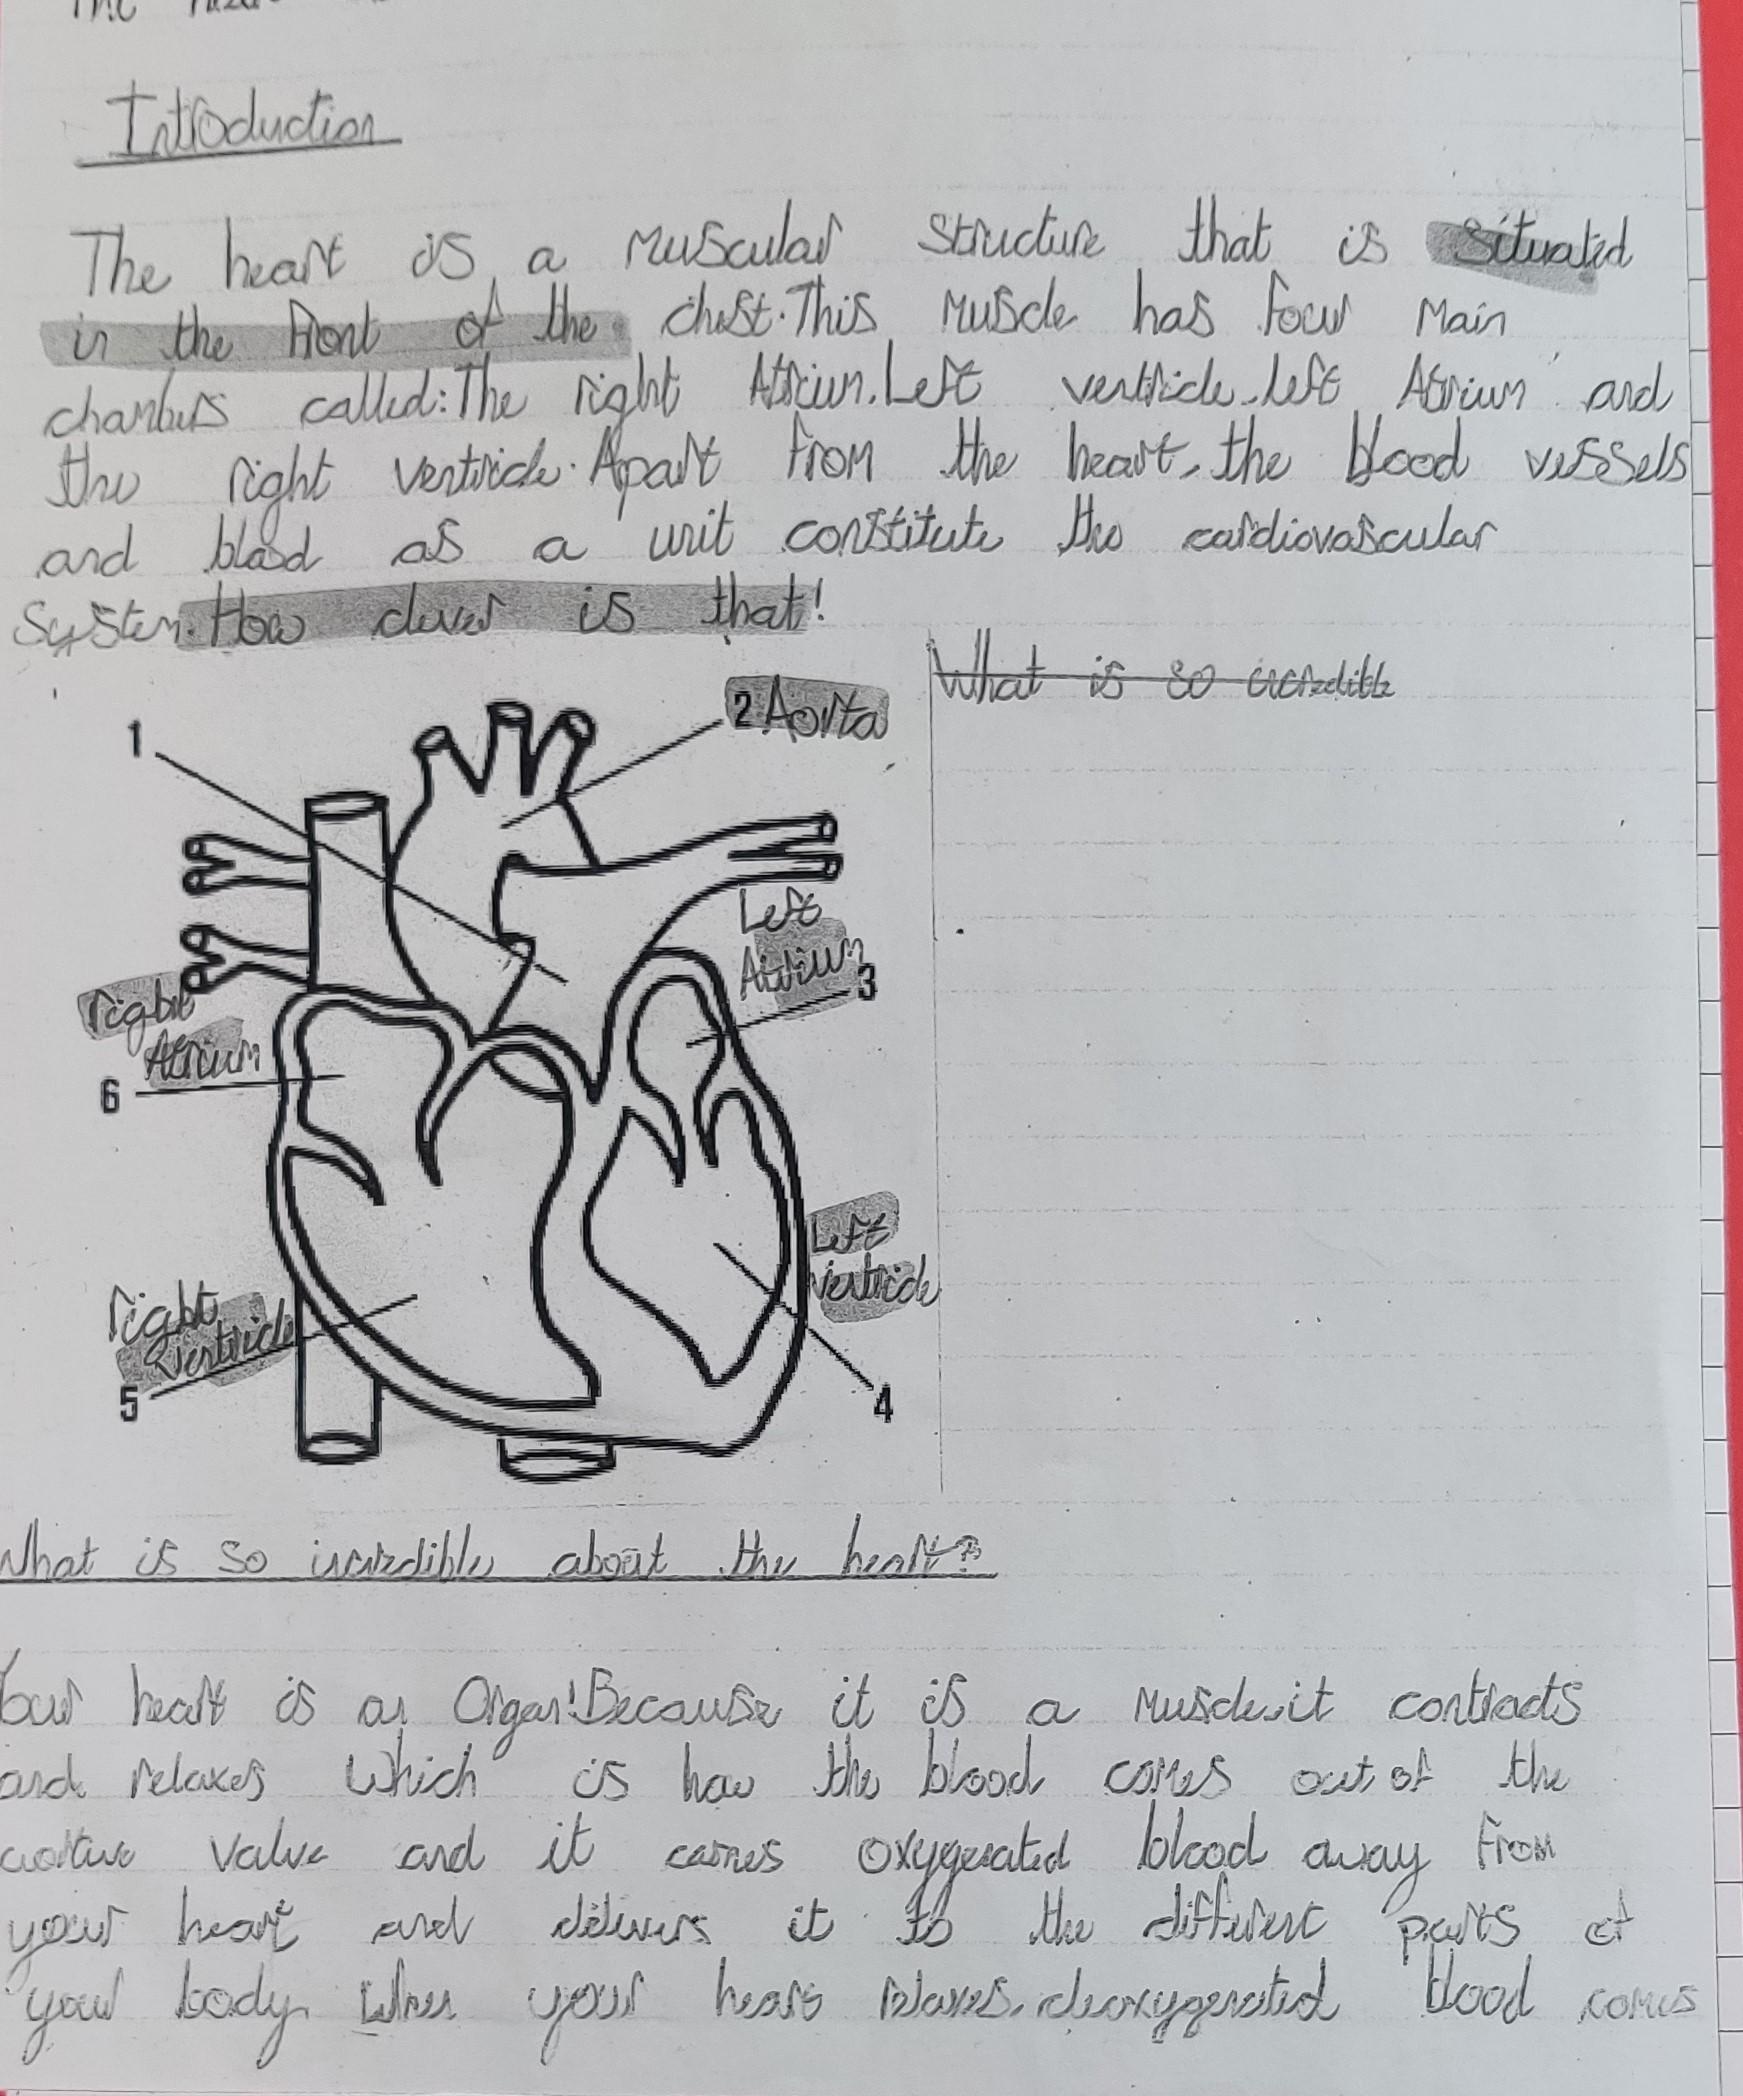 Introduction
The heart is a muscular structure that is situated
in the front of the chest. This muscle has four main
chambers called: The right Atrium, Left ventricle, left Atrium and
the right ventricle. Apart from the heart, the blood vessels
and blood as a unit constitute the cardiovascular
System. How clever is that!
What is so incredible
1
2 Aorta
Left
Atrium
3
right
Atrium
6
Left
ventricle
right
ventricle
5
4
What is so incredible about the heart?
Your heart is an Organ! Because it is a muscle, it contracts
and relaxes which is how the blood comes out of the
valve and it carries oxygenated blood away from
your heart and delivers it to the different parts of
your body. When your heart relaxes, deoxygenated blood comes